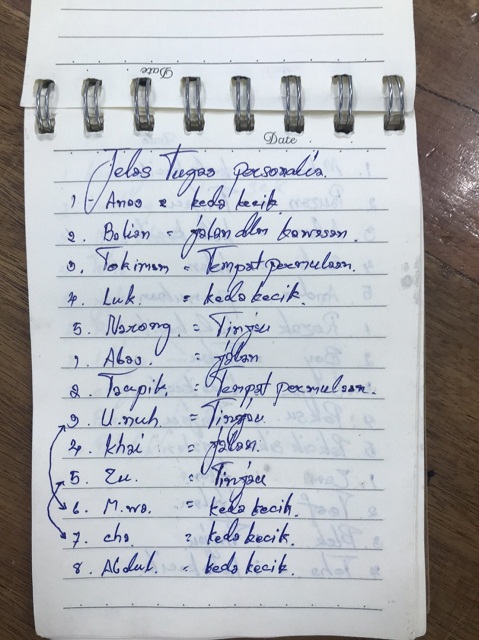 Date
Date
Jelas Tugas personalia.
1- Anas = keda kecik.
2. Balian = jalan dlm kawasan.
3. Tokimam = Tempat permulaan.
4. Luk. = keda kecik.
5. Narong. = Tinjau
1. Abas. = jalan
2. Taupik. = Tempat permulaan.
3. U.nuh. = Tinjau.
4. Khai = jalan.
5. Zu. = Tinjau
6. M.wa. = keda kecik.
7. cha. = keda kecik.
8. Abdul. = keda kecik.